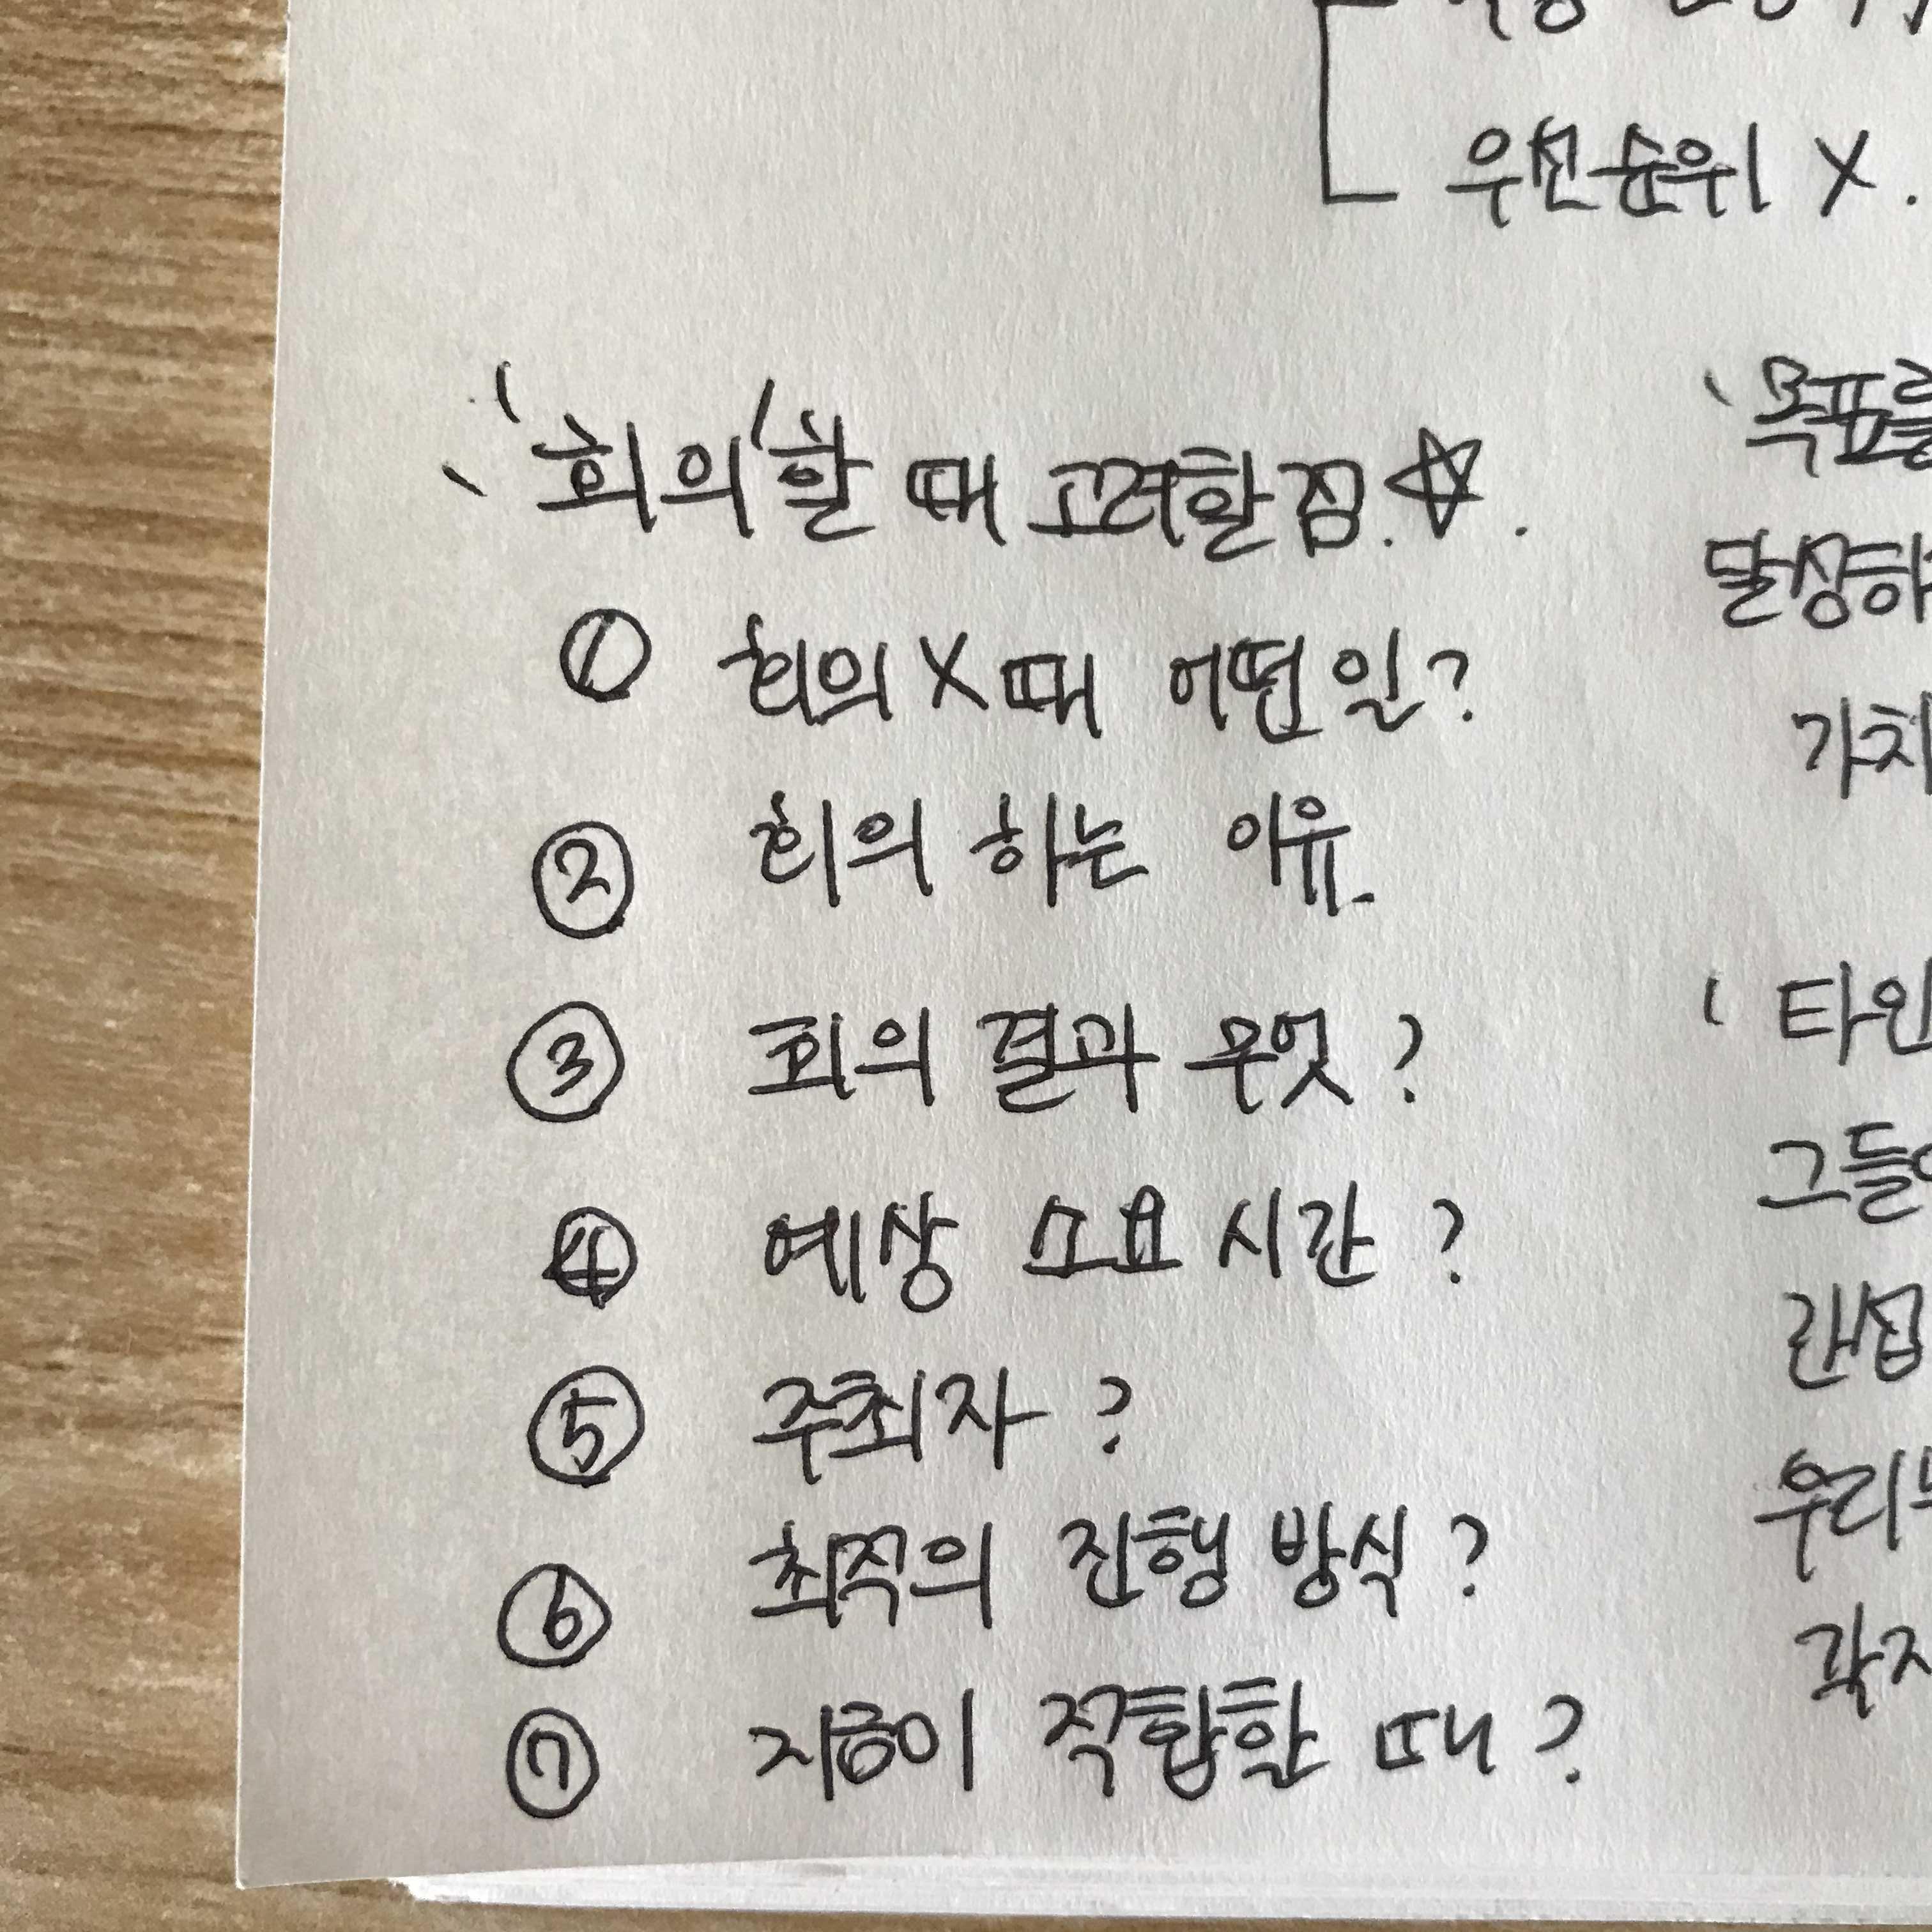 우선순위 X.
'회의'할 때 고려할 점.☆.
① 회의 X 때 어떤 일?
② 회의 하는 이유.
③ 회의 결과 무엇?
④ 예상 소요 시간?
⑤ 주최자?
⑥ 최적의 진행 방식?
⑦ 지금이 적합한 때?
'목표를
달성하
가치
'타인
그들
랜섬
우리
각자